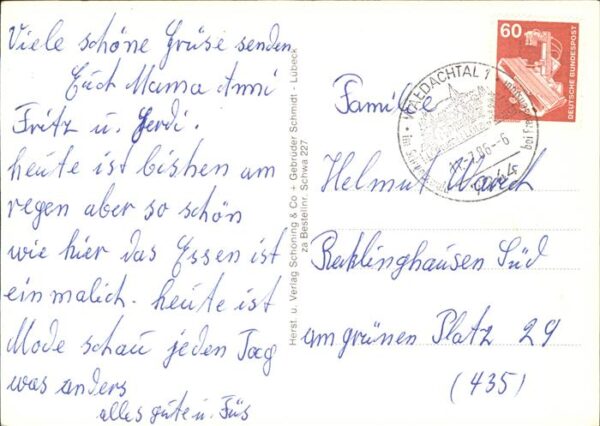 Viele schöne Grüse senden
Euch Mama Anni
Fritz u. Gerdi.
heute ist bishen am
regen aber so schön
wie hier das Essen ist
einmalich. heute ist
Mode schau jeden Tag
was anders
alles gute u. Füs
Herst. u. Verlag Schöning & Co + Gebrüder Schmidt - Lübeck
za Bestellnr. Schwa 227
60
DEUTSCHE BUNDESPOST
WALDACHTAL 1
-7.86-6
7244
bei Freudenstadt
im
Familie
Helmut
Recklinghausen Süd
am grünen Platz 29
(435)